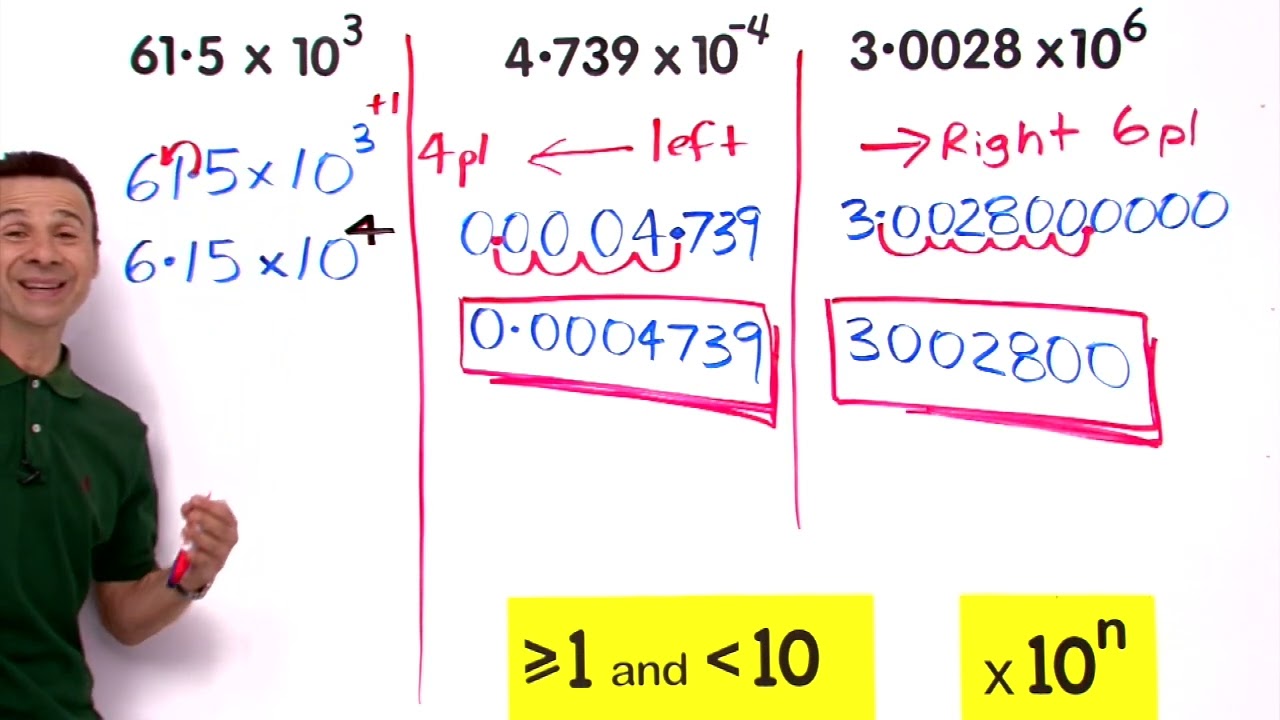 61·5 x 10³
+1
615 x 10³
6·15 x 10⁴
4·739 x 10⁻⁴
4pl ← left
0.00004·739
0·0004739
3·0028 x10⁶
→ Right 6pl
3·0028000000
3002800
≥1 and <10
x 10ⁿ